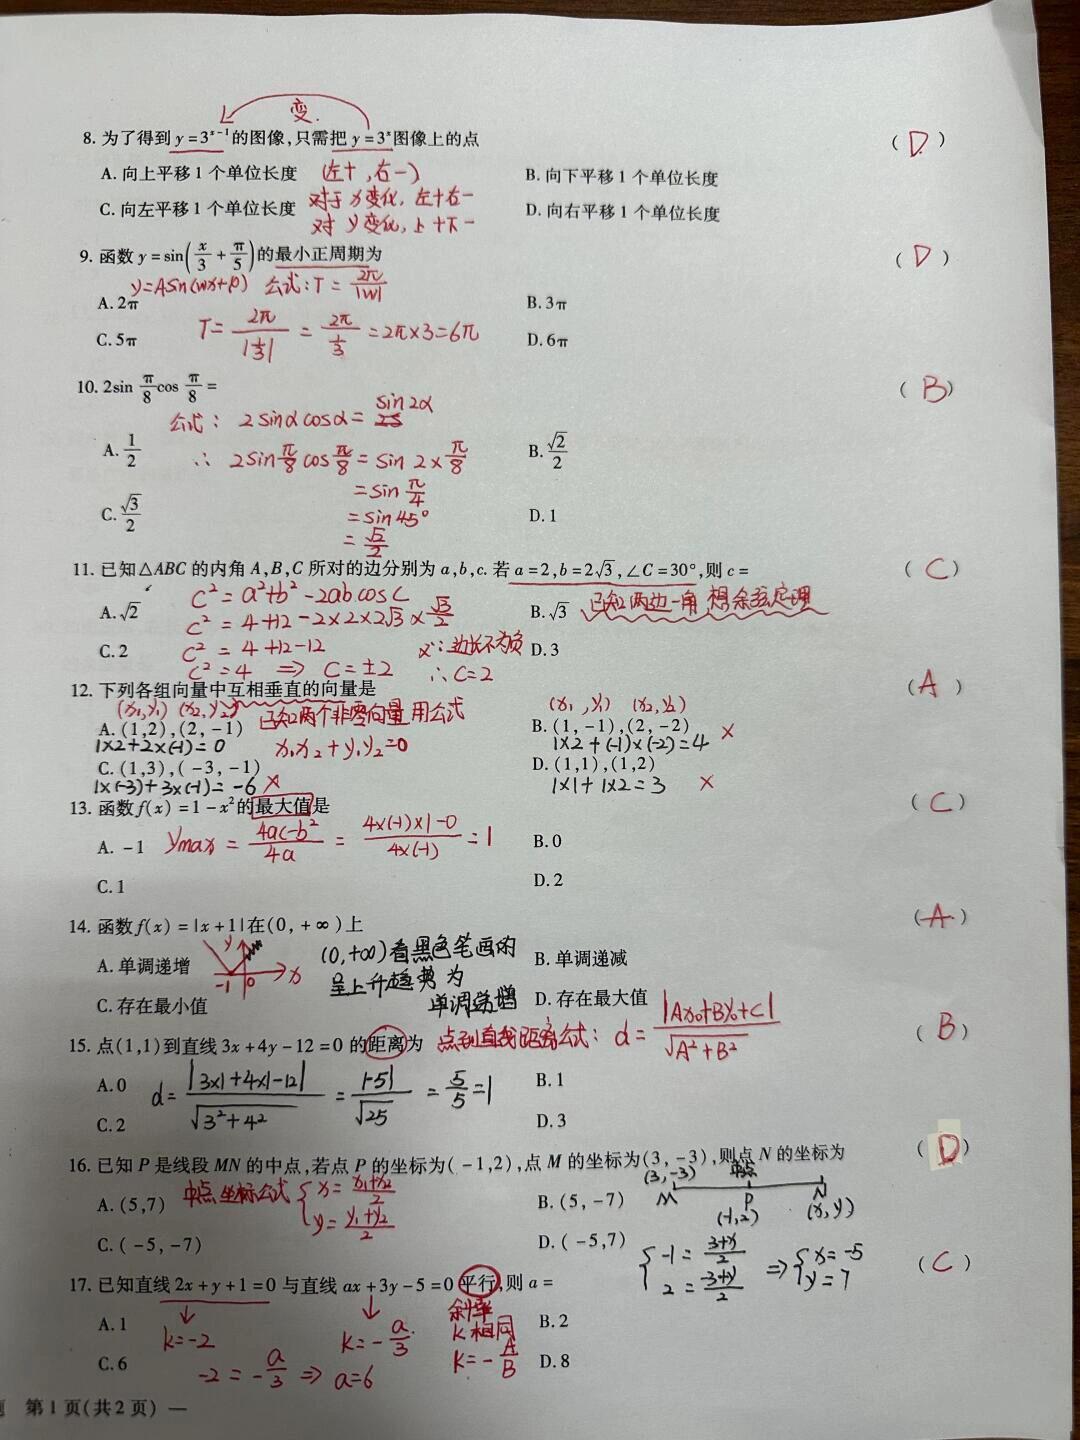 变.
8. 为了得到 y=3ˣ⁻¹的图像,只需把 y=3ˣ图像上的点 ( D )
A. 向上平移 1 个单位长度 (左十,右一) B. 向下平移 1 个单位长度
C. 向左平移 1 个单位长度 对于 x 变化, 左十右一 D. 向右平移 1 个单位长度
对 y 变化, 上十下一
9. 函数 y=sin(x/3+π/5)的最小正周期为 ( D )
y=Asin(wx+φ) 公式:T=2π/|w|
A. 2π B. 3π
C. 5π T=2π/|1/3|=2π/(1/3)=2π×3=6π D. 6π
10. 2sin π/8 cos π/8 = ( B )
公式: 2sinαcosα=sin2α
A. 1/2 ∴ 2sinπ/8cosπ/8=sin2×π/8 B. √2/2
=sinπ/4
C. √3/2 =sin45° D. 1
=√2/2
11. 已知△ABC 的内角 A,B,C 所对的边分别为 a,b,c. 若 a=2,b=2√3,∠C=30°,则 c= ( C )
c²=a²+b²-2abcosC
A. √2 c²=4+12-2×2×2√3×√3/2 B. √3 已知2两边一角 想余弦定理
C. 2 c²=4+12-12 ∵边长不为负 D. 3
c²=4 ⇒ C=±2 ∴C=2
12. 下列各组向量中互相垂直的向量是 ( A )
(x₁,y₁) (x₂,y₂) 已知2两个非零向量用公式 (x₁,y₁) (x₂,y₂)
A. (1,2),(2,-1) B. (1,-1),(2,-2) ×
1×2+2×(-1)=0 x₁x₂+y₁y₂=0 1×2+(-1)×(-2)=4
C. (1,3),(-3,-1) D. (1,1),(1,2)
1×(-3)+3×(-1)=-6 × 1×1+1×2=3 ×
13. 函数 f(x)=1-x²的最大值是 ( C )
A. -1 ymax=(4ac-b²)/4a=(4×(-1)×1-0)/(4×(-1))=1 B. 0
C. 1 D. 2
14. 函数 f(x)=|x+1|在(0,+∞)上 ( A )
y
A. 单调递增 -1 0 x (0,+∞)看黑色笔画的 B. 单调递减
呈上升趋势为
C. 存在最小值 单调递增 D. 存在最大值
15. 点(1,1)到直线 3x+4y-12=0 的距离为 点到直线距离公式: d=|Ax₀+By₀+C|/√A²+B² ( B )
A. 0 d=|3×1+4×1-12|/√3²+4²=|-5|/√25=5/5=1 B. 1
C. 2 D. 3
16. 已知 P 是线段 MN 的中点,若点 P 的坐标为(-1,2),点 M 的坐标为(3,-3),则点 N 的坐标为 ( D )
(3,-3) 中点
M P N
(-1,2) (x,y)
A. (5,7) 中点坐标公式 {x=(x₁+x₂)/2 B. (5,-7)
y=(y₁+y₂)/2
C. (-5,-7) D. (-5,7)
{-1=(3+x)/2 ⇒ {x=-5
2=(-3+y)/2 y=7
17. 已知直线 2x+y+1=0 与直线 ax+3y-5=0 平行,则 a= ( C )
斜率
A. 1 k=-2 k=-a/3. k相同 B. 2
C. 6 -2=-a/3 ⇒ a=6 k=-A/B D. 8
题 第 1 页(共 2 页) —